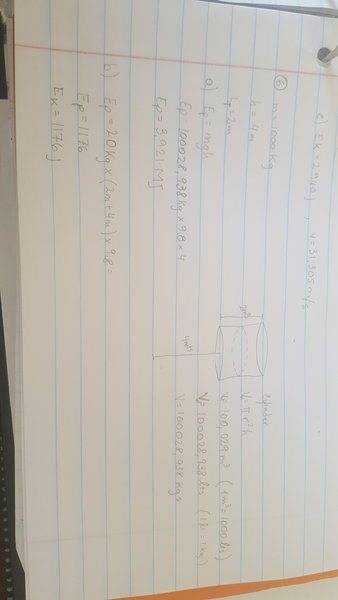 c) Ek = 2940 J , V = 31,305 m/s
⑥ m = 1000 kg
h = 4m
r = 2m
a) Ep = mgh
Ep = 100028,938 kg × 9.8 × 4
Ep = 3,921 MJ
b) Ep = 20 kg × (2m + 4m) × 9,8 =
Ep = 1176
Ek = 1176 J
cylinder
V = π r² h
V = 100,029 m³ (1 m³ = 1000 ltrs)
V = 100028,938 ltrs (1 ltr = 1 kg)
V = 100028,938 kgs